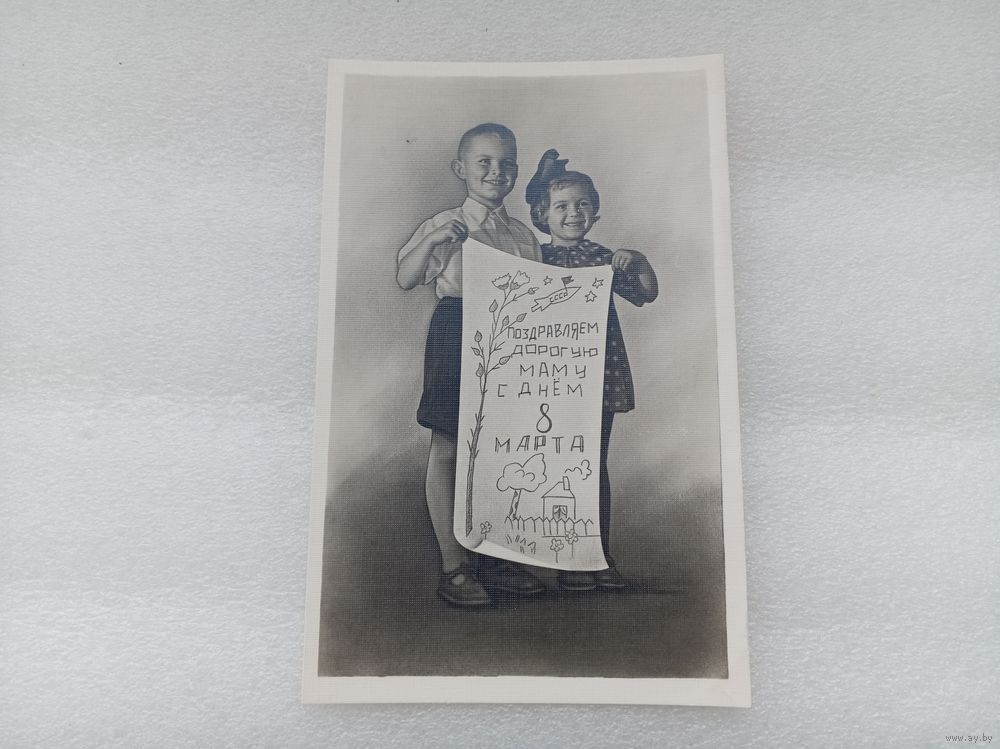 СССР
ПОЗДРАВЛЯЕМ
ДОРОГУЮ
МАМУ
С ДНЁМ
8
МАРТА
www.ay.by